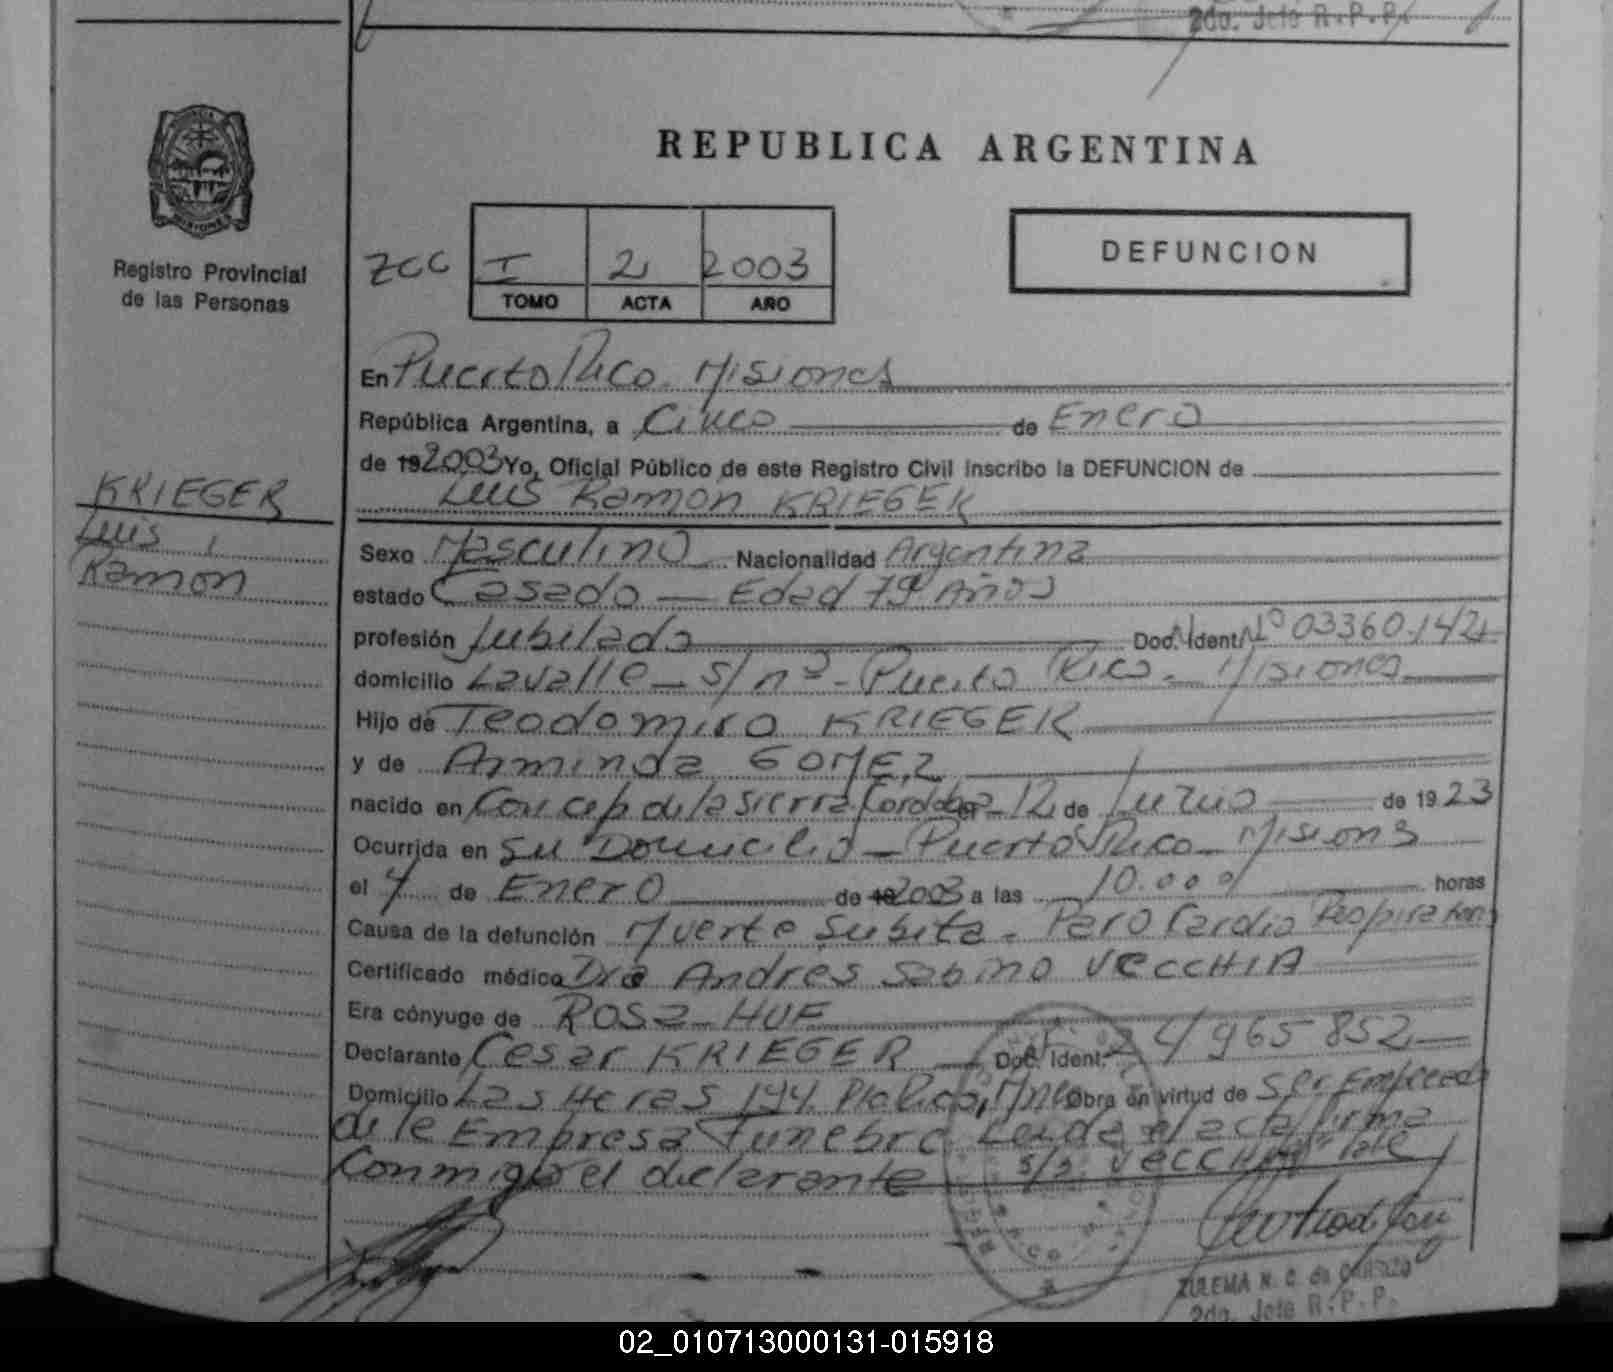 2do. Jefe R.P.P.
REPUBLICA ARGENTINA
MISIONES
Registro Provincial
de las Personas
DEFUNCION
ZCC I 2 2003
TOMO ACTA AÑO
En Puerto Rico Misiones
República Argentina, a Cinco de Enero
de 19 2003 Yo, Oficial Público de este Registro Civil inscribo la DEFUNCION de
Luis Ramon KRIEGER
KRIEGER
Luis
Ramon
Sexo Masculino Nacionalidad Argentina
estado Casado — Edad 79 Años
profesión Jubilado Doc. Ident. Nº 03360.142
domicilio Lavalle - s/nº - Puerto Rico - Misiones
Hijo de Teodomiro KRIEGER
y de Arminda GOMEZ
nacido en Concep de la Sierra Cordoba el 12 de Junio de 1923
Ocurrida en su Domicilio - Puerto Rico - Misions
el 4 de Enero de 19 2003 a las 10.00 horas
Causa de la defunción Muerte Subita - Paro Cardio Respiratorio
Certificado médico Dr Andres Sabino VECCHIA
Era cónyuge de Rosa HUF
Declarante Cesar KRIEGER Doc. Ident. 24965852
Domicilio Las Heras 144 Pto Rico, Mnes Obra en virtud de Ser Empleado
de le Empresa Funebre Leida el acta firma
Conmigo el declarante s/r VECCHIA Vale
ZULEMA N. C. de
2do. Jefe R.P.P.
02_010713000131-015918